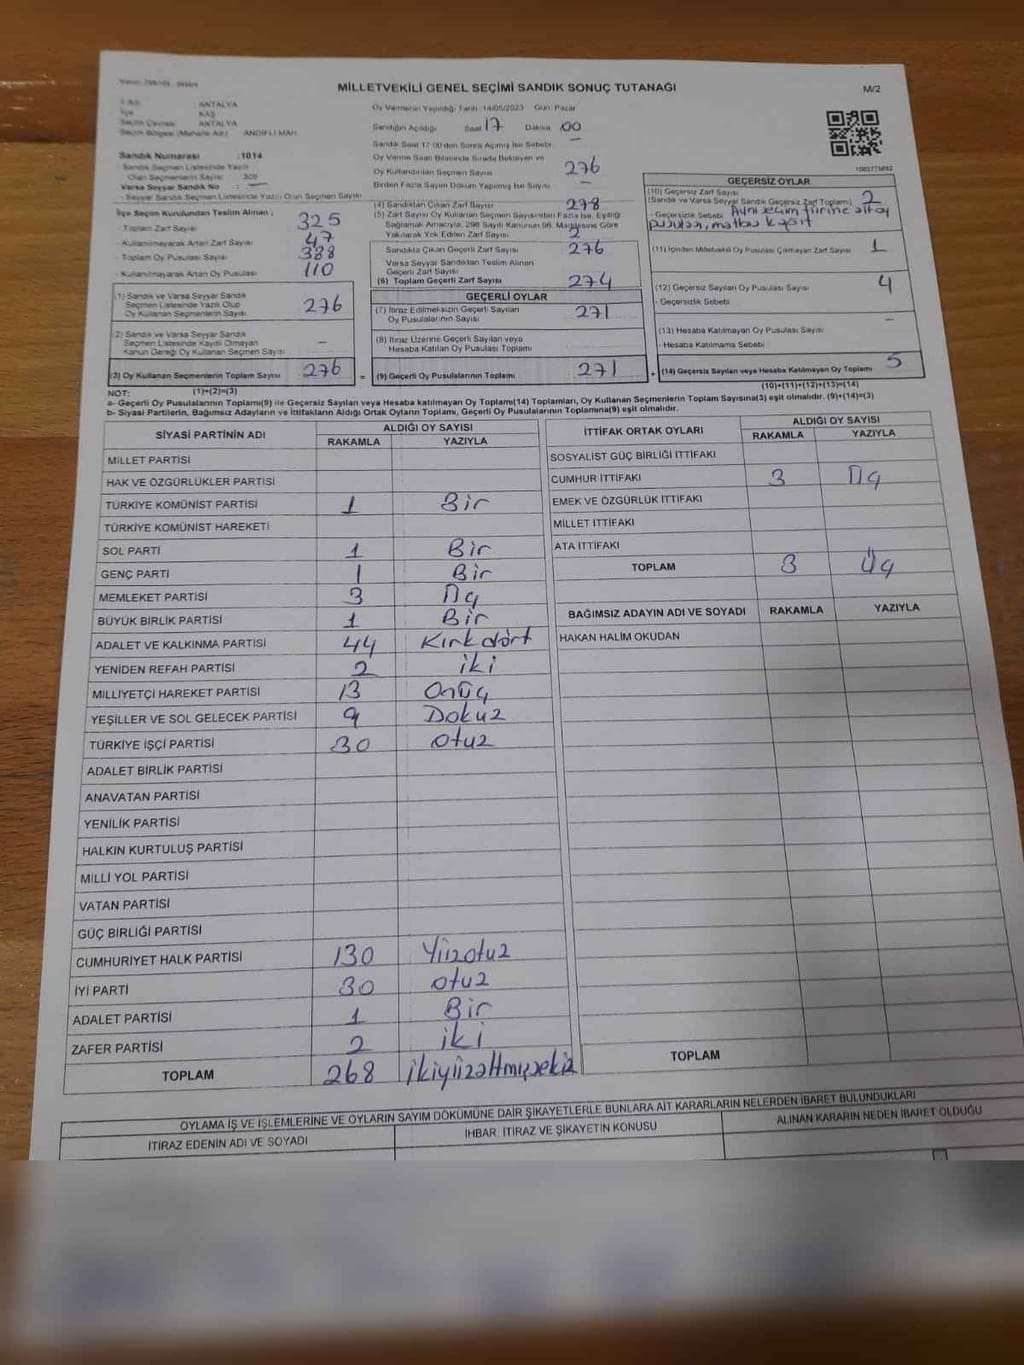 MİLLETVEKİLİ GENEL SEÇİMİ SANDIK SONUÇ TUTANAĞI
M/2
ANTALYA
KAŞ
ANTALYA
Seçim Bölgesi (Mahalle Adı) ANDİFLİ MAH
Sandık Numarası :1014
Sandık Seçmen Listesinde Yazılı
Olan Seçmenlerin Sayısı
Varsa Seyyar Sandık No : —
Seyyar Sandık Seçmen Listesinde Yazılı Olan Seçmen Sayısı
İlçe Seçim Kurulundan Teslim Alınan ;
- Toplam Zarf Sayısı 325
- Kullanılmayarak Artan Zarf Sayısı 47
- Toplam Oy Pusulası Sayısı 388
- Kullanılmayarak Artan Oy Pusulası 110
(1) Sandık ve Varsa Seyyar Sandık
Seçmen Listesinde Yazılı Olup
Oy Kullanan Seçmenlerin Sayısı 276
(2) Sandık ve Varsa Seyyar Sandık
Seçmen Listesinde Kayıtlı Olmayan
Kanun Gereği Oy Kullanan Seçmen Sayısı –
(3) Oy Kullanan Seçmenlerin Toplam Sayısı 276
(1)+(2)=(3)
Oy Vermenin Yapıldığı Tarih: 14/05/2023 Gün: Pazar
Sandığın Açıldığı Saat 17 Dakika 00
Sandık Saat 17:00'den Sonra Açılmış İse Sebebi –
Oy Verme Saati Bitiminde Sırada Bekleyen ve
Oy Kullandırılan Seçmen Sayısı 276
Birden Fazla Sayım Döküm Yapılmış İse Sayısı –
(4) Sandıktan Çıkan Zarf Sayısı 278
(5) Zarf Sayısı Oy Kullanan Seçmen Sayısından Fazla İse, Eşitliği
Sağlamak Amacıyla, 298 Sayılı Kanunun 98. Maddesine Göre
Yakılarak Yok Edilen Zarf Sayısı 2
Sandıkta Çıkan Geçerli Zarf Sayısı 276
Varsa Seyyar Sandıktan Teslim Alınan
Geçerli Zarf Sayısı
(6) Toplam Geçerli Zarf Sayısı 274
GEÇERLİ OYLAR
(7) İtiraz Edilmeksizin Geçerli Sayılan
Oy Pusulalarının Sayısı 271
(8) İtiraz Üzerine Geçerli Sayılan veya
Hesaba Katılan Oy Pusulası Toplamı
= (9) Geçerli Oy Pusulalarının Toplamı 271
GEÇERSİZ OYLAR
(10) Geçersiz Zarf Sayısı
(Sandık ve Varsa Seyyar Sandık Geçersiz Zarf Toplamı) 2
- Geçersizlik Sebebi Aynı seçim türüne ait oy
pusulası, matbu kağıt
(11) İçinden Milletvekili Oy Pusulası Çıkmayan Zarf Sayısı 1
(12) Geçersiz Sayılan Oy Pusulası Sayısı 4
- Geçersizlik Sebebi
(13) Hesaba Katılmayan Oy Pusulası Sayısı –
- Hesaba Katılmama Sebebi
+ (14) Geçersiz Sayılan veya Hesaba Katılmayan Oy Toplamı 5
(10)+(11)+(12)+(13)=(14)
NOT:
a- Geçerli Oy Pusulalarının Toplamı(9) ile Geçersiz Sayılan veya Hesaba katılmayan Oy Toplamı(14) Toplamları, Oy Kullanan Seçmenlerin Toplam Sayısına(3) eşit olmalıdır. (9)+(14)=(3)
b- Siyasi Partilerin, Bağımsız Adayların ve İttifakların Aldığı Ortak Oyların Toplamı, Geçerli Oy Pusulalarının Toplamına(9) eşit olmalıdır.
SİYASİ PARTİNİN ADI
ALDIĞI OY SAYISI
RAKAMLA YAZIYLA
MİLLET PARTİSİ
HAK VE ÖZGÜRLÜKLER PARTİSİ
TÜRKİYE KOMÜNİST PARTİSİ 1 Bir
TÜRKİYE KOMÜNİST HAREKETİ
SOL PARTİ 1 Bir
GENÇ PARTİ 1 Bir
MEMLEKET PARTİSİ 3 Üç
BÜYÜK BİRLİK PARTİSİ 1 Bir
ADALET VE KALKINMA PARTİSİ 44 Kırkdört
YENİDEN REFAH PARTİSİ 2 iki
MİLLİYETÇİ HAREKET PARTİSİ 13 Onüç
YEŞİLLER VE SOL GELECEK PARTİSİ 9 Dokuz
TÜRKİYE İŞÇİ PARTİSİ 30 otuz
ADALET BİRLİK PARTİSİ
ANAVATAN PARTİSİ
YENİLİK PARTİSİ
HALKIN KURTULUŞ PARTİSİ
MİLLİ YOL PARTİSİ
VATAN PARTİSİ
GÜÇ BİRLİĞİ PARTİSİ
CUMHURİYET HALK PARTİSİ 130 Yüzotuz
İYİ PARTİ 30 otuz
ADALET PARTİSİ 1 Bir
ZAFER PARTİSİ 2 iki
TOPLAM 268 ikiyüzaltmışsekiz
İTTİFAK ORTAK OYLARI
ALDIĞI OY SAYISI
RAKAMLA YAZIYLA
SOSYALİST GÜÇ BİRLİĞİ İTTİFAKI
CUMHUR İTTİFAKI 3 Üç
EMEK VE ÖZGÜRLÜK İTTİFAKI
MİLLET İTTİFAKI
ATA İTTİFAKI
TOPLAM 3 Üç
BAĞIMSIZ ADAYIN ADI VE SOYADI RAKAMLA YAZIYLA
HAKAN HALİM OKUDAN
TOPLAM
OYLAMA İŞ VE İŞLEMLERİNE VE OYLARIN SAYIM DÖKÜMÜNE DAİR ŞİKAYETLERLE BUNLARA AİT KARARLARIN NELERDEN İBARET BULUNDUKLARI
İTİRAZ EDENİN ADI VE SOYADI
İHBAR, İTİRAZ VE ŞİKAYETİN KONUSU
ALINAN KARARIN NEDEN İBARET OLDUĞU